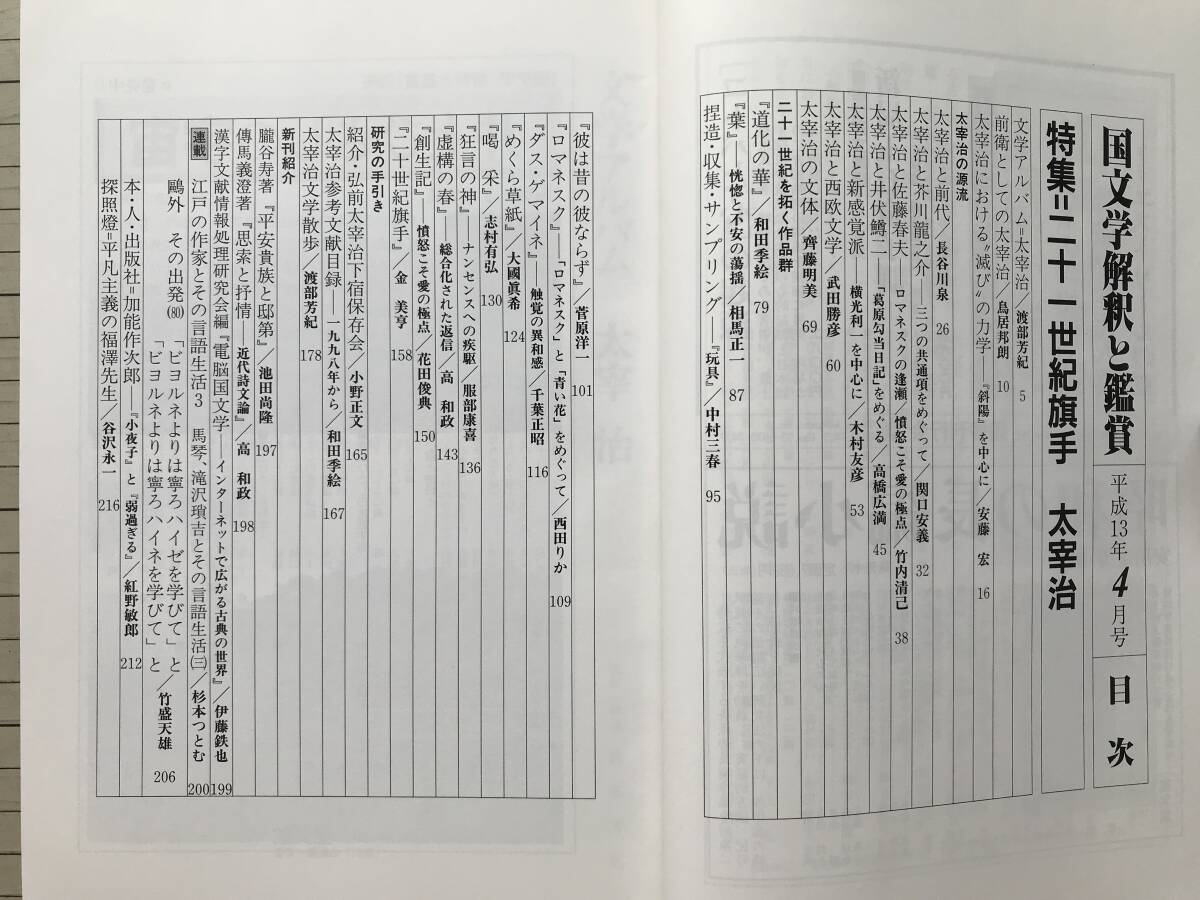 国文学解釈と鑑賞 平成13年4月号 目次
特集=二十一世紀旗手 太宰治
文学アルバム=太宰治/渡部芳紀 5
前衛としての太宰治/鳥居邦朗 10
太宰治における〝滅び〟の力学―『斜陽』を中心に/安藤 宏 16
太宰治の源流
太宰治と前代/長谷川泉 26
太宰治と芥川龍之介――三つの共通項をめぐって/関口安義 32
太宰治と佐藤春夫 ロマネスクの逢瀬/憤怒こそ愛の極点/竹内清己 38
太宰治と井伏鱒二――「葛原勾当日記」をめぐる/高橋広満 45
太宰治と新感覚派――横光利一を中心に/木村友彦 53
太宰治と西欧文学/武田勝彦 60
太宰治の文体/齊藤明美 69
二十一世紀を拓く作品群
『道化の華』/和田季絵 79
『葉』――恍惚と不安の蕩揺/相馬正一 87
捏造・収集・サンプリング――『玩具』/中村三春 95
『彼は昔の彼ならず』/菅原洋一 101
『ロマネスク』――「ロマネスク」と「青い花」をめぐって/西田りか 109
『ダス・ゲマイネ』――触覚の異和感/千葉正昭 116
『めくら草紙』/大國眞希 124
『喝 采』/志村有弘 130
『狂言の神』――ナンセンスへの疾駆/服部康喜 136
『虚構の春』――総合化された返信/高 和政 143
『創生記』――憤怒こそ愛の極点/花田俊典 150
『二十世紀旗手』/金 美亨 158
研究の手引き
紹介・弘前太宰治下宿保存会/小野正文 165
太宰治参考文献目録――一九九八年から/和田季絵 167
太宰治文学散歩/渡部芳紀 178
新刊紹介
朧谷寿著『平安貴族と邸第』/池田尚隆 197
傳馬義澄著『思索と抒情――近代詩文論』/高 和政 198
漢字文献情報処理研究会編『電脳国文学――インターネットで広がる古典の世界』/伊藤鉄也 199
連載 江戸の作家とその言語生活3 馬琴、滝沢瑣吉とその言語生活㈢/杉本つとむ 200
鷗外 その出発(80) 「ビヨルネよりは寧ろハイゼを学びて」と
「ビヨルネよりは寧ろハイネを学びて」と/竹盛天雄 206
本・人・出版社=加能作次郎 『小夜子』と『弱過ぎる』/紅野敏郎 212
探照燈=平凡主義の福澤先生/谷沢永一 216